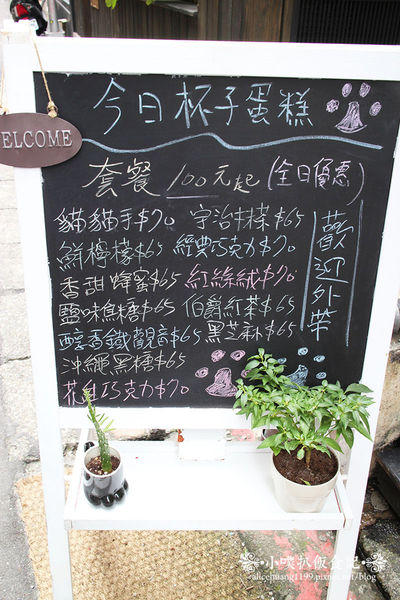 WELCOME
今日杯子蛋糕
套餐100元起(全日優惠)
貓貓手$70 宇治抹茶$65
鮮檸檬$65 經典巧克力$70
香甜蜂蜜$65 紅絲絨$70
鹽味焦糖$65 伯爵紅茶$65
醇香鐵觀音$65 黑芝麻$65
沖繩黑糖$65
花生巧克力$70
歡迎外帶
小噗趴飯食記
alicehuang1199.pixnet.net/blog